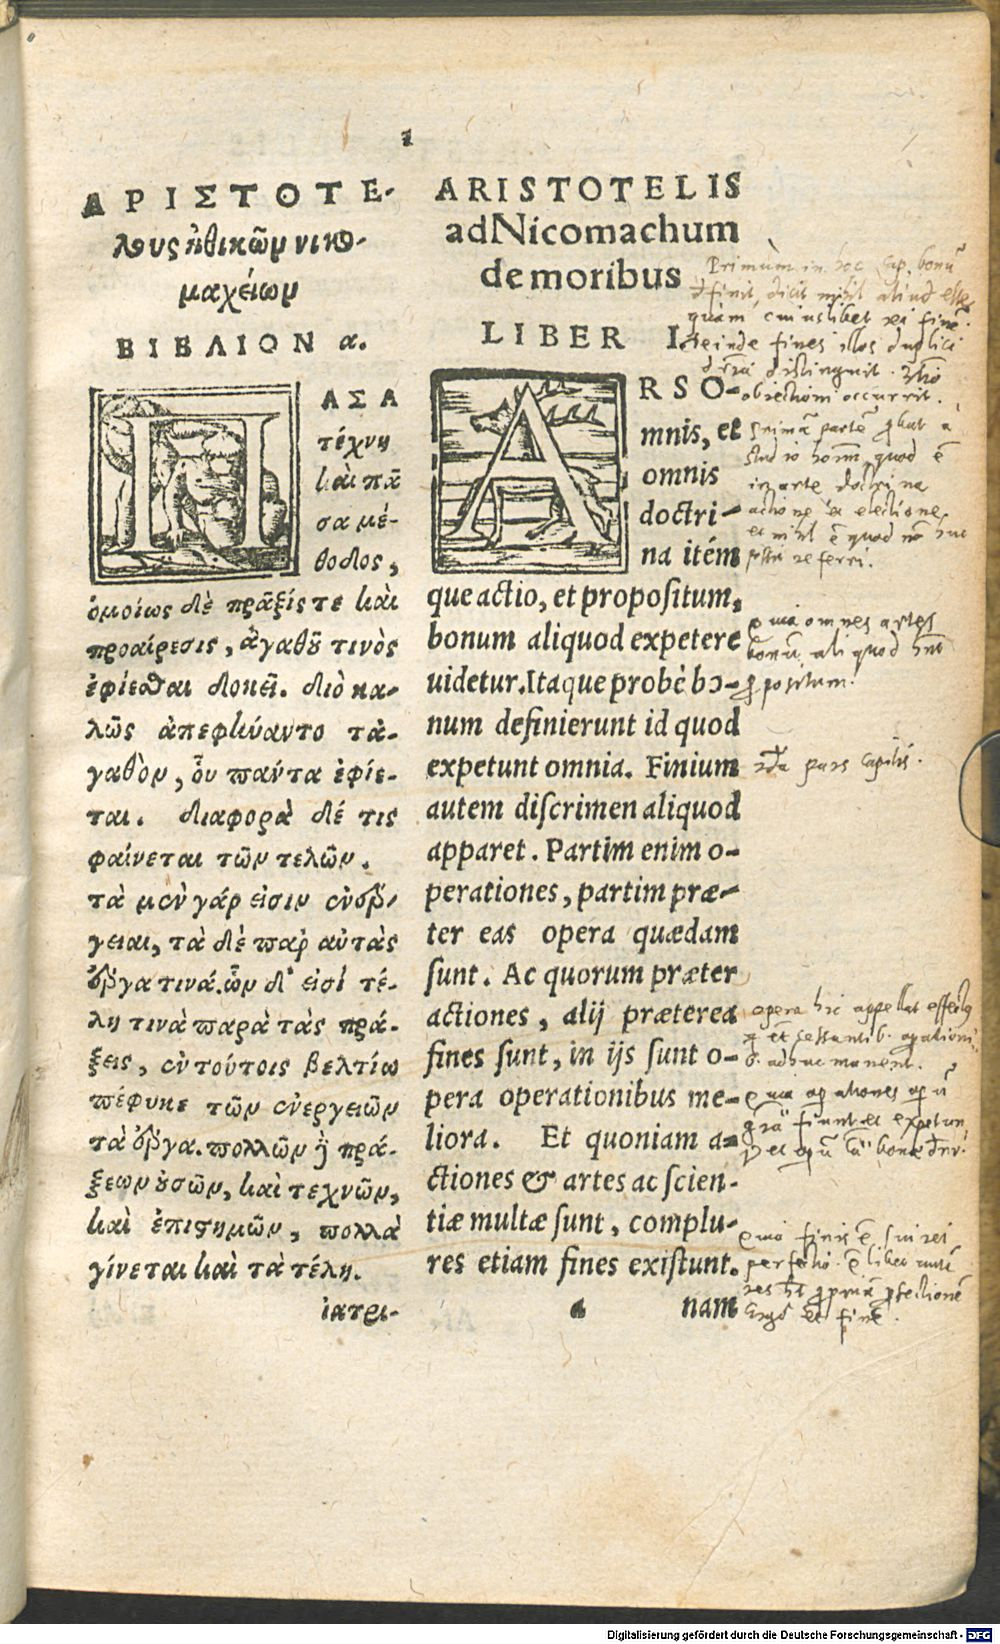 1
ΑΡΙΣΤΟΤΕ-
λους ἠθικῶν νικο-
μαχείων
ΒΙΒΛΙΟΝ α.
ΠΑΣΑ
τέχνη
καὶ πᾶ
σα μέ-
θοδος,
ὁμοίως δὲ πρᾶξίς τε καὶ
προαίρεσις, ἀγαθοῦ τινὸς
ἐφίεσθαι δοκεῖ. διὸ κα-
λῶς ἀπεφήναντο τἀ-
γαθὸν, οὗ πάντα ἐφίε-
ται. διαφορὰ δέ τις
φαίνεται τῶν τελῶν.
τὰ μὲν γάρ εἰσιν ἐνέρ-
γειαι, τὰ δὲ παρ' αὐτὰς
ἔργα τινά. ὧν δ' εἰσὶ τέ-
λη τινὰ παρὰ τὰς πρά-
ξεις, ἐν τούτοις βελτίω
πέφυκε τῶν ἐνεργειῶν
τὰ ἔργα. πολλῶν δὲ πρά-
ξεων οὐσῶν, καὶ τεχνῶν,
καὶ ἐπιστημῶν, πολλὰ
γίνεται καὶ τὰ τέλη.
ἰατρι-
ARISTOTELIS
ad Nicomachum
de moribus
LIBER I.
ARS O-
mnis, et
omnis
doctri-
na itém
que actio, et propositum,
bonum aliquod expetere
uidetur. Itaque probè bo-
num definierunt id quod
expetunt omnia. Finium
autem discrimen aliquod
apparet. Partim enim o-
perationes, partim præ-
ter eas opera quædam
sunt. Ac quorum præter
actiones, alij præterea
fines sunt, in ijs sunt o-
pera operationibus me-
liora. Et quoniam a-
ctiones & artes ac scien-
tiæ multæ sunt, complu-
res etiam fines existunt.
a nam
Primùm in hoc cap. bonũ
dicit nihil aliud esse
quàm cuiuslibet rei finẽ.
Deinde fines illos duplici
distinguit.
obiectioni occurrit.
primã partẽ
quod ẽ
in arte doctrina
actione et electione
et nihil ẽ quod nõ huc
referri.
quia omnes artes
bonũ aliquod
propositum.
2da pars capitis.
opera hic appellat
adhuc manent.
fiunt et expetun
quia finis ẽ sui rei
perfectio. ẽ
Ergo et finẽ.
Digitalisierung gefördert durch die Deutsche Forschungsgemeinschaft - DFG